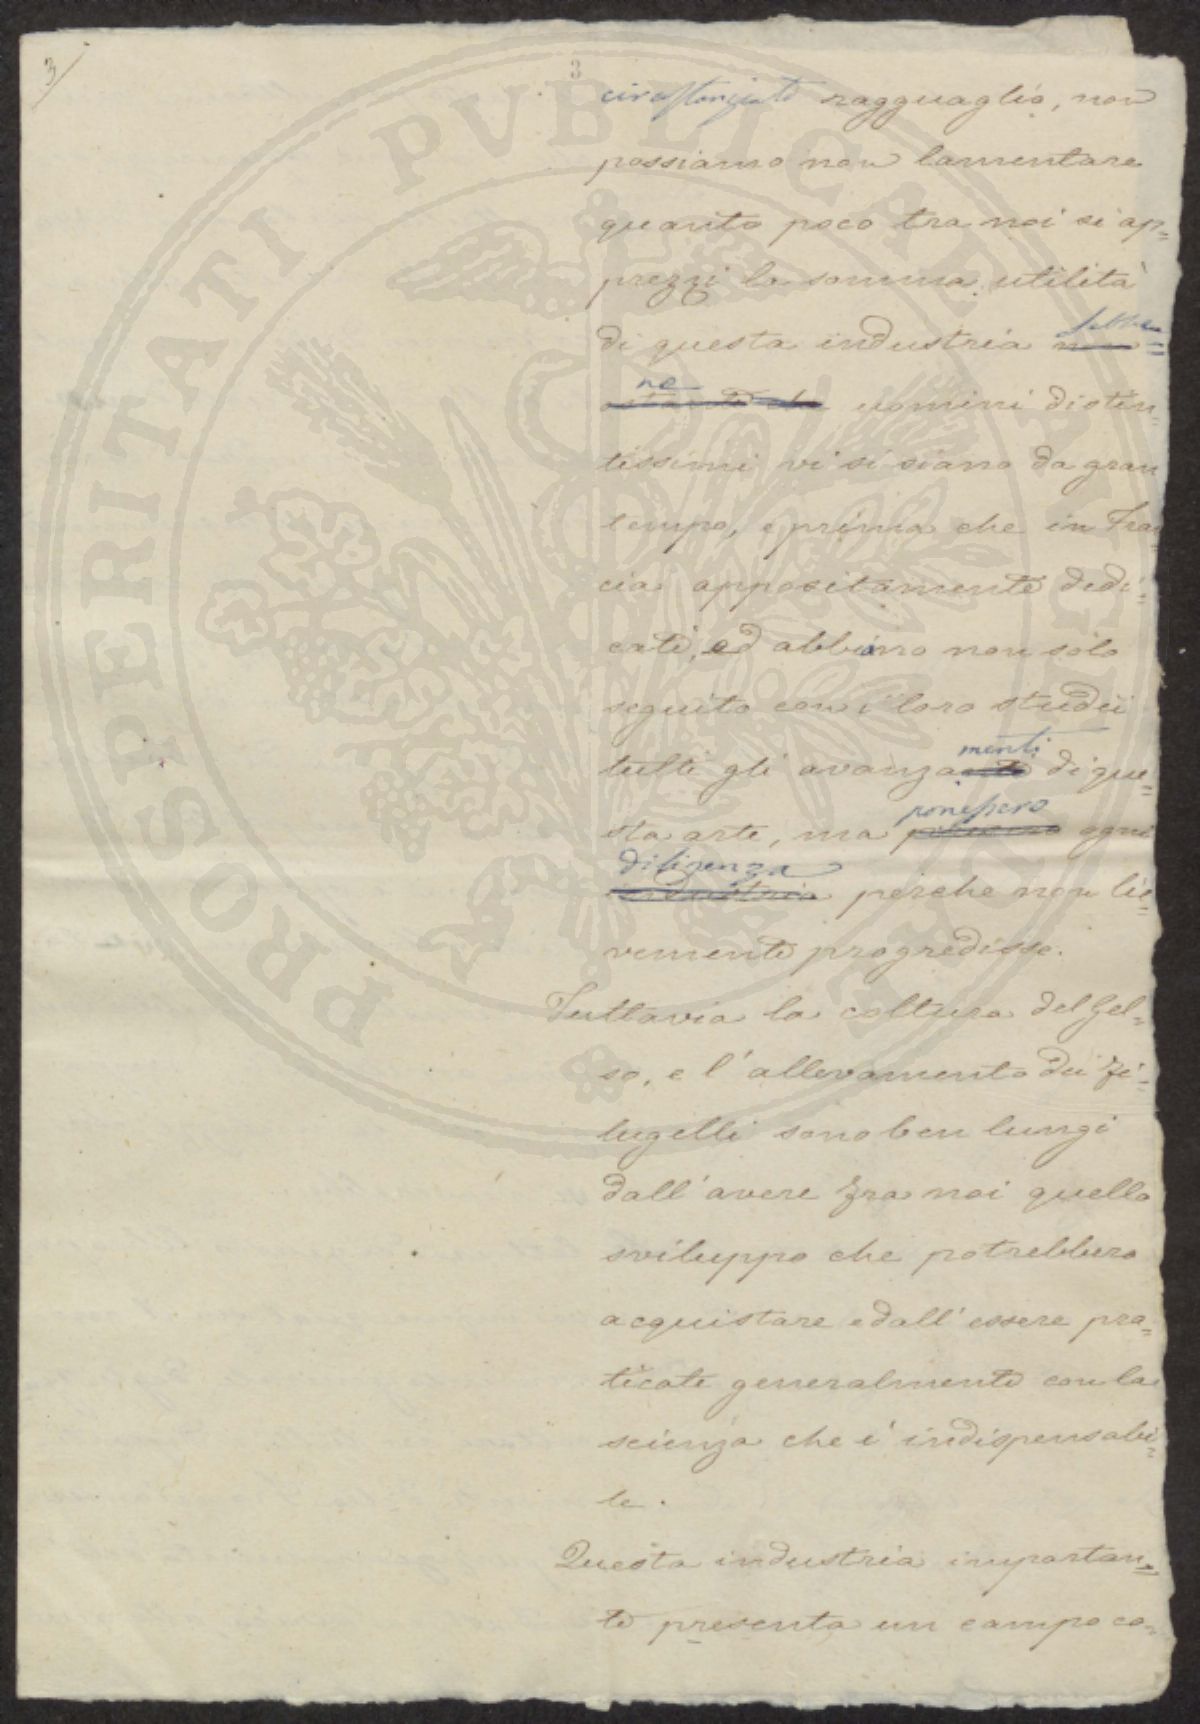 3
3
circostanziato ragguaglio, non
possiamo non lamentare
quanto poco tra noi si ap=
prezzi la somma utilità
di questa industria non= sebbe=
ne
ostante che uomini distin=
tissimi vi si siano da gran
tempo, e prima che in Fra
cia appositamente dedi=
cati, ed abbiano non solo
seguito con i loro studii
menti
tutti gli avanza di que=
ponessero
sta arte, ma ogni
diligenza
industria perche non lie=
vemente progredisse.
Tuttavia la coltura del gel=
so, e l'allevamento dei fi=
lugelli sono ben lungi
dall'avere fra noi quello
sviluppo che potrebbero
acquistare e dall'essere pra=
ticate generalmente con la
scienza che è indispensabi=
le.
Questa industria importan=
te presenta un campo co=
PROSPERITATI PVBLICAE AVGENDAE